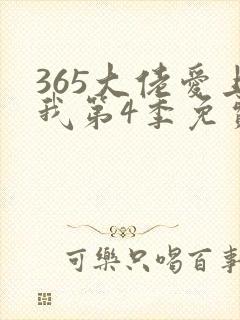 365大佬愛上
我第4季免費
可樂只喝百事